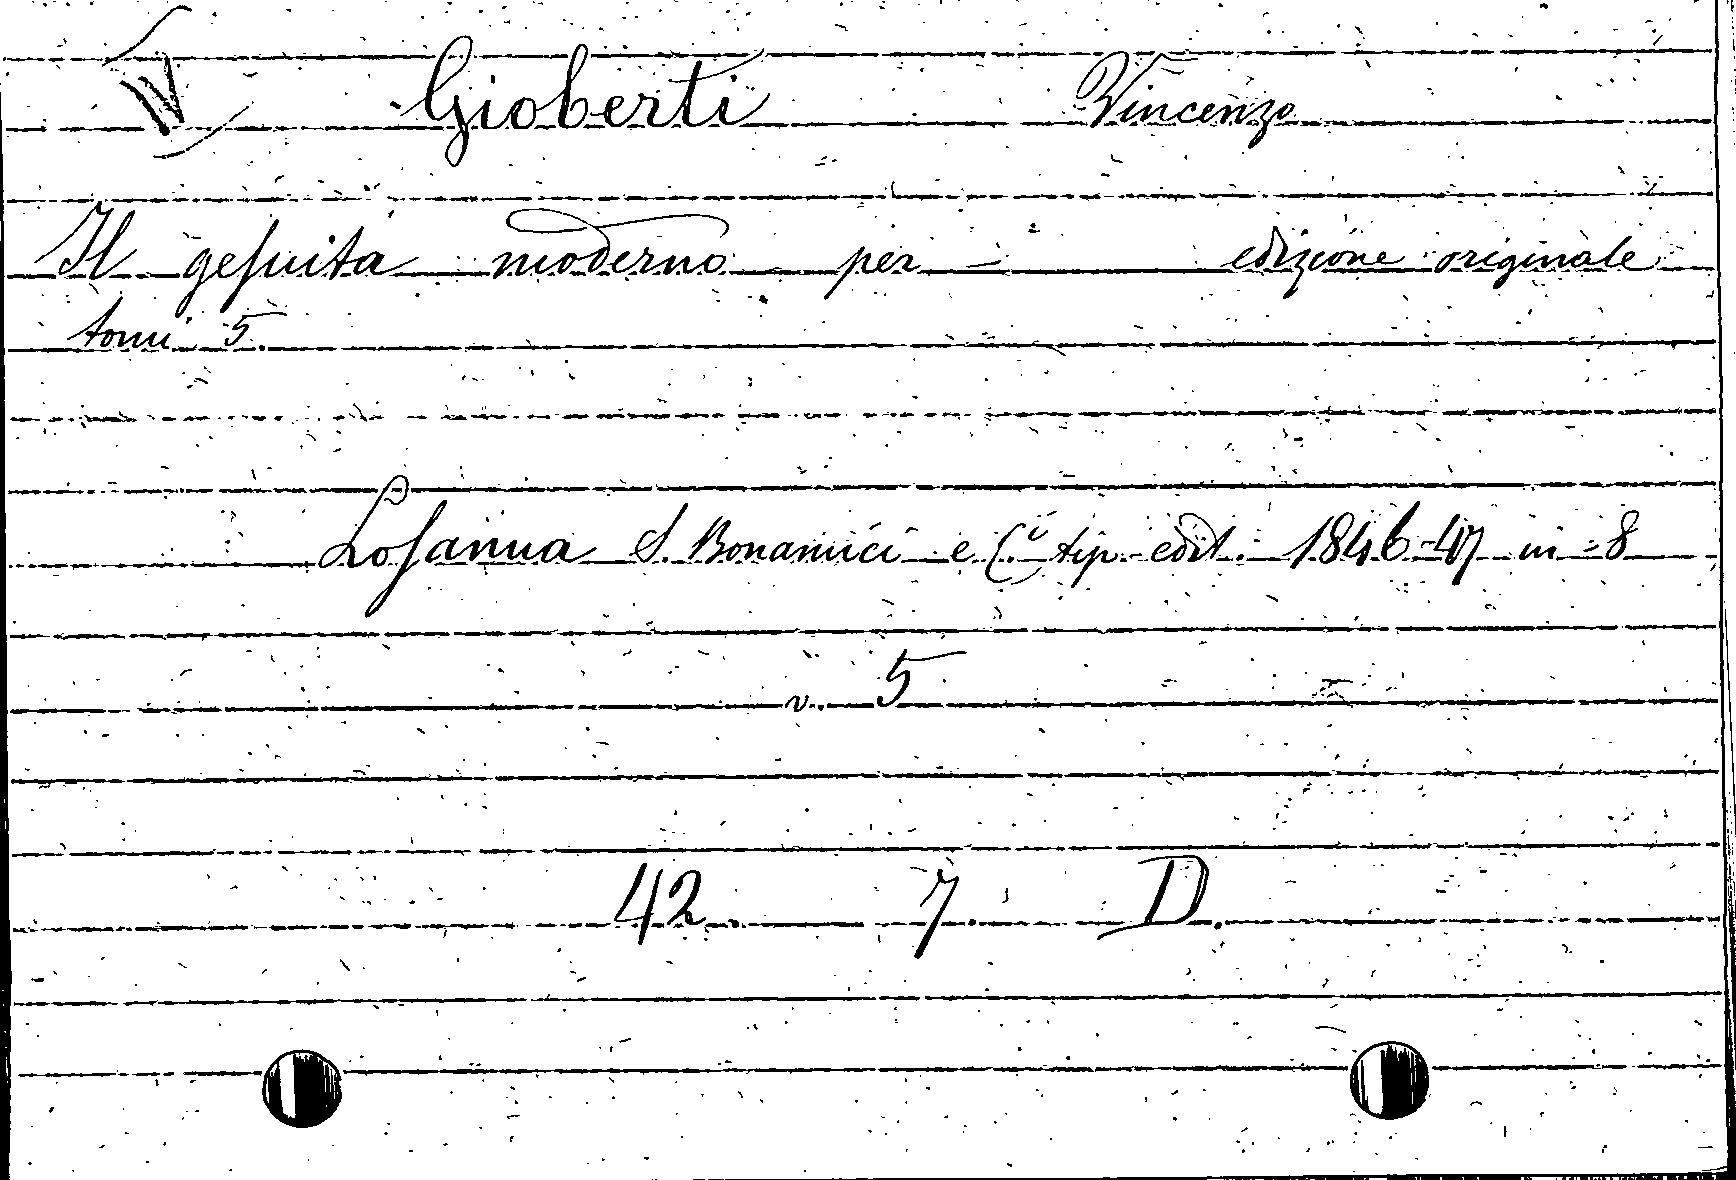 V Gioberti Vincenzo
Il gesuita moderno per — edizione originale
tomi 5.
Losanna S. Bonamici e C.ⁱ tip. edit. 1846-47 in-8
v. 5
42. 7. D.